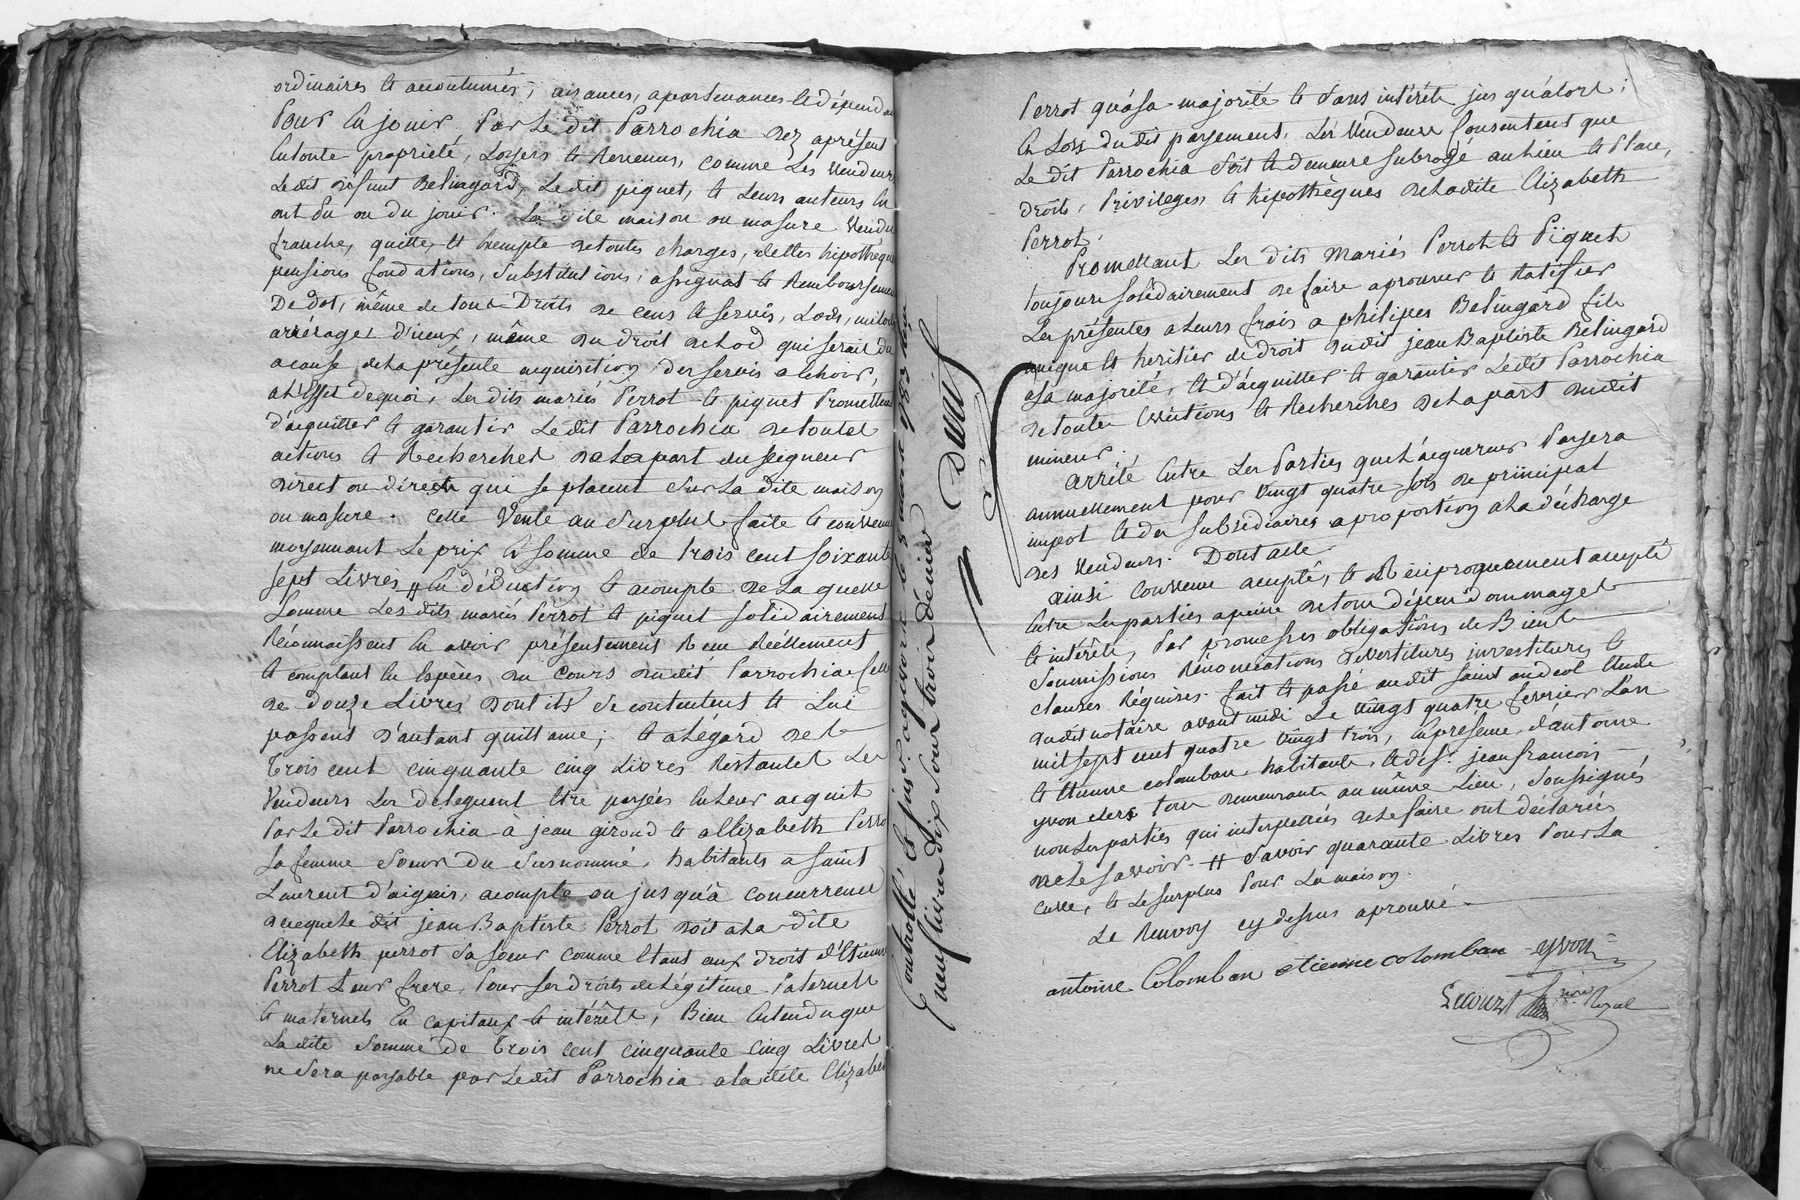 ordinaires et accoutumés, aisances, apartenances et dépendan
Pour en jouir Par le dit Parrochia dez aprésent
en toute propriété, Loyers et Revenus, comme Les vendeurs
Ledit défunt Belingard, Ledit piquet, et Leurs auteurs en
ont du ou du jouir. La dite maison ou masure vendue
franche, quitte, et exempte de toutes charges, dettes hipothèques
pensions fondations, substitutions, assignat et Remboursement
De dot, même de tous Droits de cens et servis, Lods, milods
arrérages d'iceux, même du droit de Lod qui serait du
acause de la présente acquisition, des servis a echoir,
a l'effet dequoi, Les dits mariés Perrot et piquet Promettent
d'acquitter et garantir Ledit Parrochia de toutes
actions et Recherches de La part du seigneur
direct ou directe qui se placent sur La dite maison
ou masure. cette vente au surplus faite et convenue
moyennant Le prix et somme de trois cent soixante
sept Livres, # en déduction et acompte de La quelle
somme Les dits mariés Perrot et piquet solidairement
Réconnaissent en avoir présentement Reçu Réellement
et comptant en Espèces du cours dudit Parrochia celle
de douze Livres dont ils se contentent et Lui
passent d'autant quittance; et a Légard des
trois cent cinquante cinq Livres Restantes Les
vendeurs Les deleguent être payées en Leur acquit
Par Le dit Parrochia à jean giroud et a Elizabeth Perrot
sa femme soeur du susnommé, habitants a saint
Laurent d'aignis, acompte ou jusqu'à concurrence
de ce que Le dit jean Baptiste Perrot doit a La dite
Elizabeth perrot sa soeur comme etant aux droit d'Etienne
Perrot Leur frere, Pour ses droits de Légitime Paternels
et maternels en capitaux et intérêts, Bien entendu que
La dite somme de trois cent cinquante cinq Livres
ne sera payable par Ledit Parrochia a la dite Elizabeth
Controllé et insc. a givors le 5 mars 1783 Reçu
neuf livres dix sous trois deniers
Perrot qu'a sa majorité et sans intérêt jusqu'alors;
et Lors du dit payement, Les vendeurs consentent que
Le dit Parrochia soit et demeure subrogé au lieu et Place,
droits, Privileges et hipothèques de La dite Elizabeth
Perrot.
Promettant Les dits Mariés Perrot et Piquet
toujours solidairement de faire aprouver et Ratifier
Les présentes a Leurs frais a philipes Belingard fils
unique et heritier de droit dudit jean Baptiste Belingard
a sa majorité, et d'acquitter et garantir Ledit Parrochia
de toutes évictions et Recherches de La part dudit
mineur.
arrêté Entre Les Parties que L'acquereur Payera
annuellement pour vingt quatre sols de principal
impot et des subsidiaires a proportion a La décharge
des vendeurs. Dont acte
ainsi convenu accepté, et Réciproquement accepté
Entre Les parties a peine de tous dépens dommages
et intérêts, Par promesses obligations de Biens
soumissions Rénonciations divestitures investitures et
clauses Réquises. fait et passé audit saint andeol étude
dudit notaire avant midi Le vingt quatre fevrier L'an
mil sept cent quatre vingt trois, En présence, d'antoine
et Etienne colomban habitants, et de sr. jean francois
yvon clers tous demeurants au même Lieu, soussignés
non Les parties qui interpellées de Le faire ont déclarées
ne Le savoir. # savoir quarante Livres Pour La
cuve, et Le surplus Pour La maison.
Le Renvoy cy dessus aprouvé.
antoine Colomban etienne colomban yvon
Lecourt nore Royal